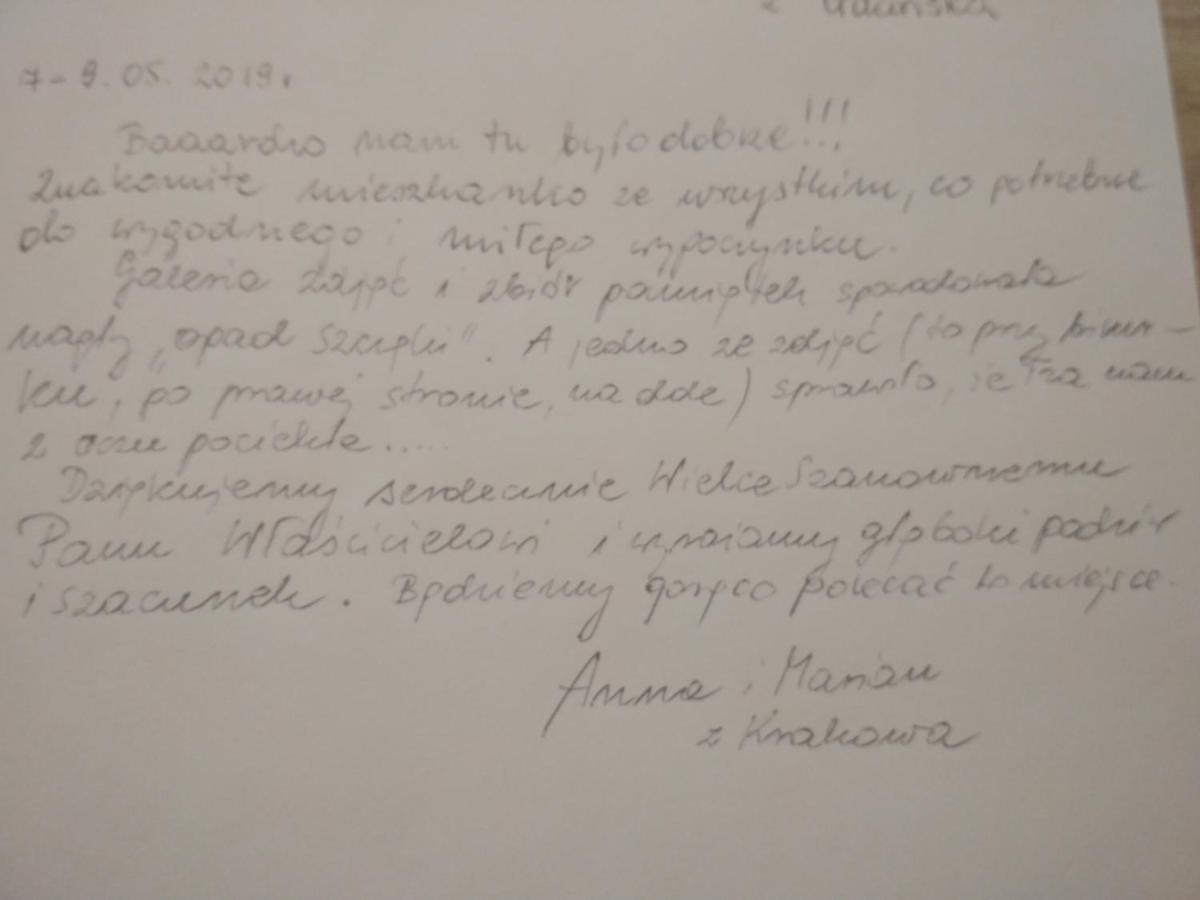 z Gdańska
7-9.05.2019r.
Baaardzo nam tu było dobrze!!!
Znakomite mieszkanko ze wszystkim, co potrzebne
do wygodnego i miłego wypoczynku.
Galeria zdjęć i zbiór pamiątek spowodowała
nagły "opad szczęki". A jedno ze zdjęć (to przy biur-
ku, po prawej stronie, na dole) sprawiło, że łza nam
z oczu pociekła.....
Dziękujemy serdecznie Wielce Szanownemu
Panu Właścicielowi i wyrażamy głęboki podziw
i szacunek. Będziemy gorąco polecać to miejsce.
Anna i Marian
z Krakowa